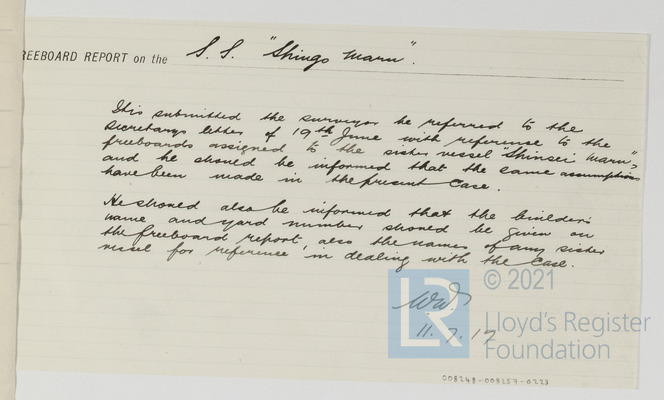 REEBOARD REPORT on the S. S. "Shingo Maru".
It is submitted the surveyor be referred to the
Secretarys letter of 19th June with reference to the
freeboards assigned to the sister vessel "Shinsei Maru",
and he should be informed that the same assumptions
have been made in the present case.
He should also be informed that the builders
name and yard number should be given on
the freeboard report, also the names of any sister
vessel for reference in dealing with the case.
11.7.17
© 2021
LR
Lloyd's Register
Foundation
008248-008257-0223